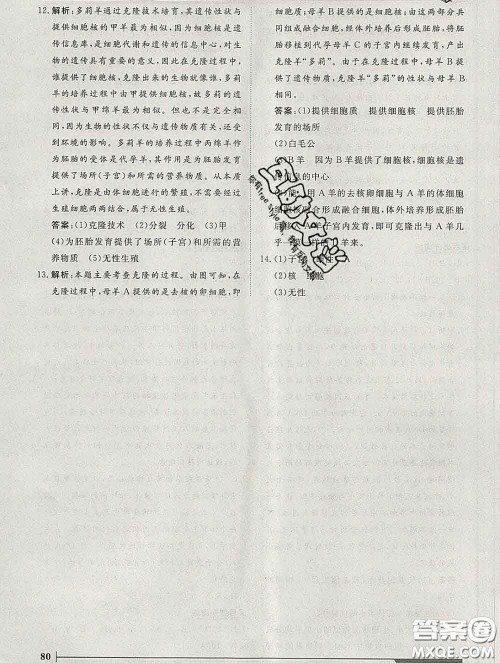 12.解析:多莉羊通过克隆技术培育,其遗传性状与
提供细胞核的甲羊基本相同。因为细胞核是遗
传信息库,是细胞代谢和遗传的信息中心,对生物
的遗传具有非常重要的意义,因此在克隆过程中,
谁提供了细胞核,克隆出来的生物就像谁。多莉
羊的培养过程中甲绵羊提供的是细胞核,多莉的
遗传性状与甲绵羊最为相似。但生物的性状不仅
与遗传有关,还受环境的影响,因此克隆出的生
物在性状上不仅仅与细胞核有关,还与生存的环
境有关。多莉羊的培养过程中丙绵羊作为
胚胎发育的受体是代孕羊,其作用是为胚胎发育
提供了场所(子宫)和所需的营养物质。从本质
上讲,克隆是由体细胞进行的繁殖,不需要经过
生殖细胞两两结合,属于无性生殖。
答案:(1)克隆技术 (2)分裂 分化 (3)甲
(4)为胚胎发育提供了场所(子宫)和所需的营
养物质 (5)无性生殖
13.解析:本题主要考查克隆的过程。由图可知,在
克隆过程中,母羊A提供的是去核的卵细胞,即
细胞质;母羊B提供的是细胞核,由这两部分共
同组成融合细胞,经体外培养形成胚胎后,将胚
胎移植到代孕母羊C的子宫内继续发育,
产出克隆羊"多莉"。在克隆过程中,母羊B提
供了遗传物质,所以,克隆羊"多莉"的性状与母羊B
相同。
答案:(1)提供细胞质 提供细胞核 提供胚胎
发育的场所
(2)白毛公
B羊 因为B羊提供了细胞核,细胞核是遗
信息的中心
用A羊的去核卵细胞与A羊的体细胞
细胞核形成融合细胞,体外培养形成胚
A羊子宫内发育,即可克隆出与A羊几
一样的 羊来。
14.(1)子 性
(2)核 细胞
(3)无性
80
答案圈
MXQE.COM